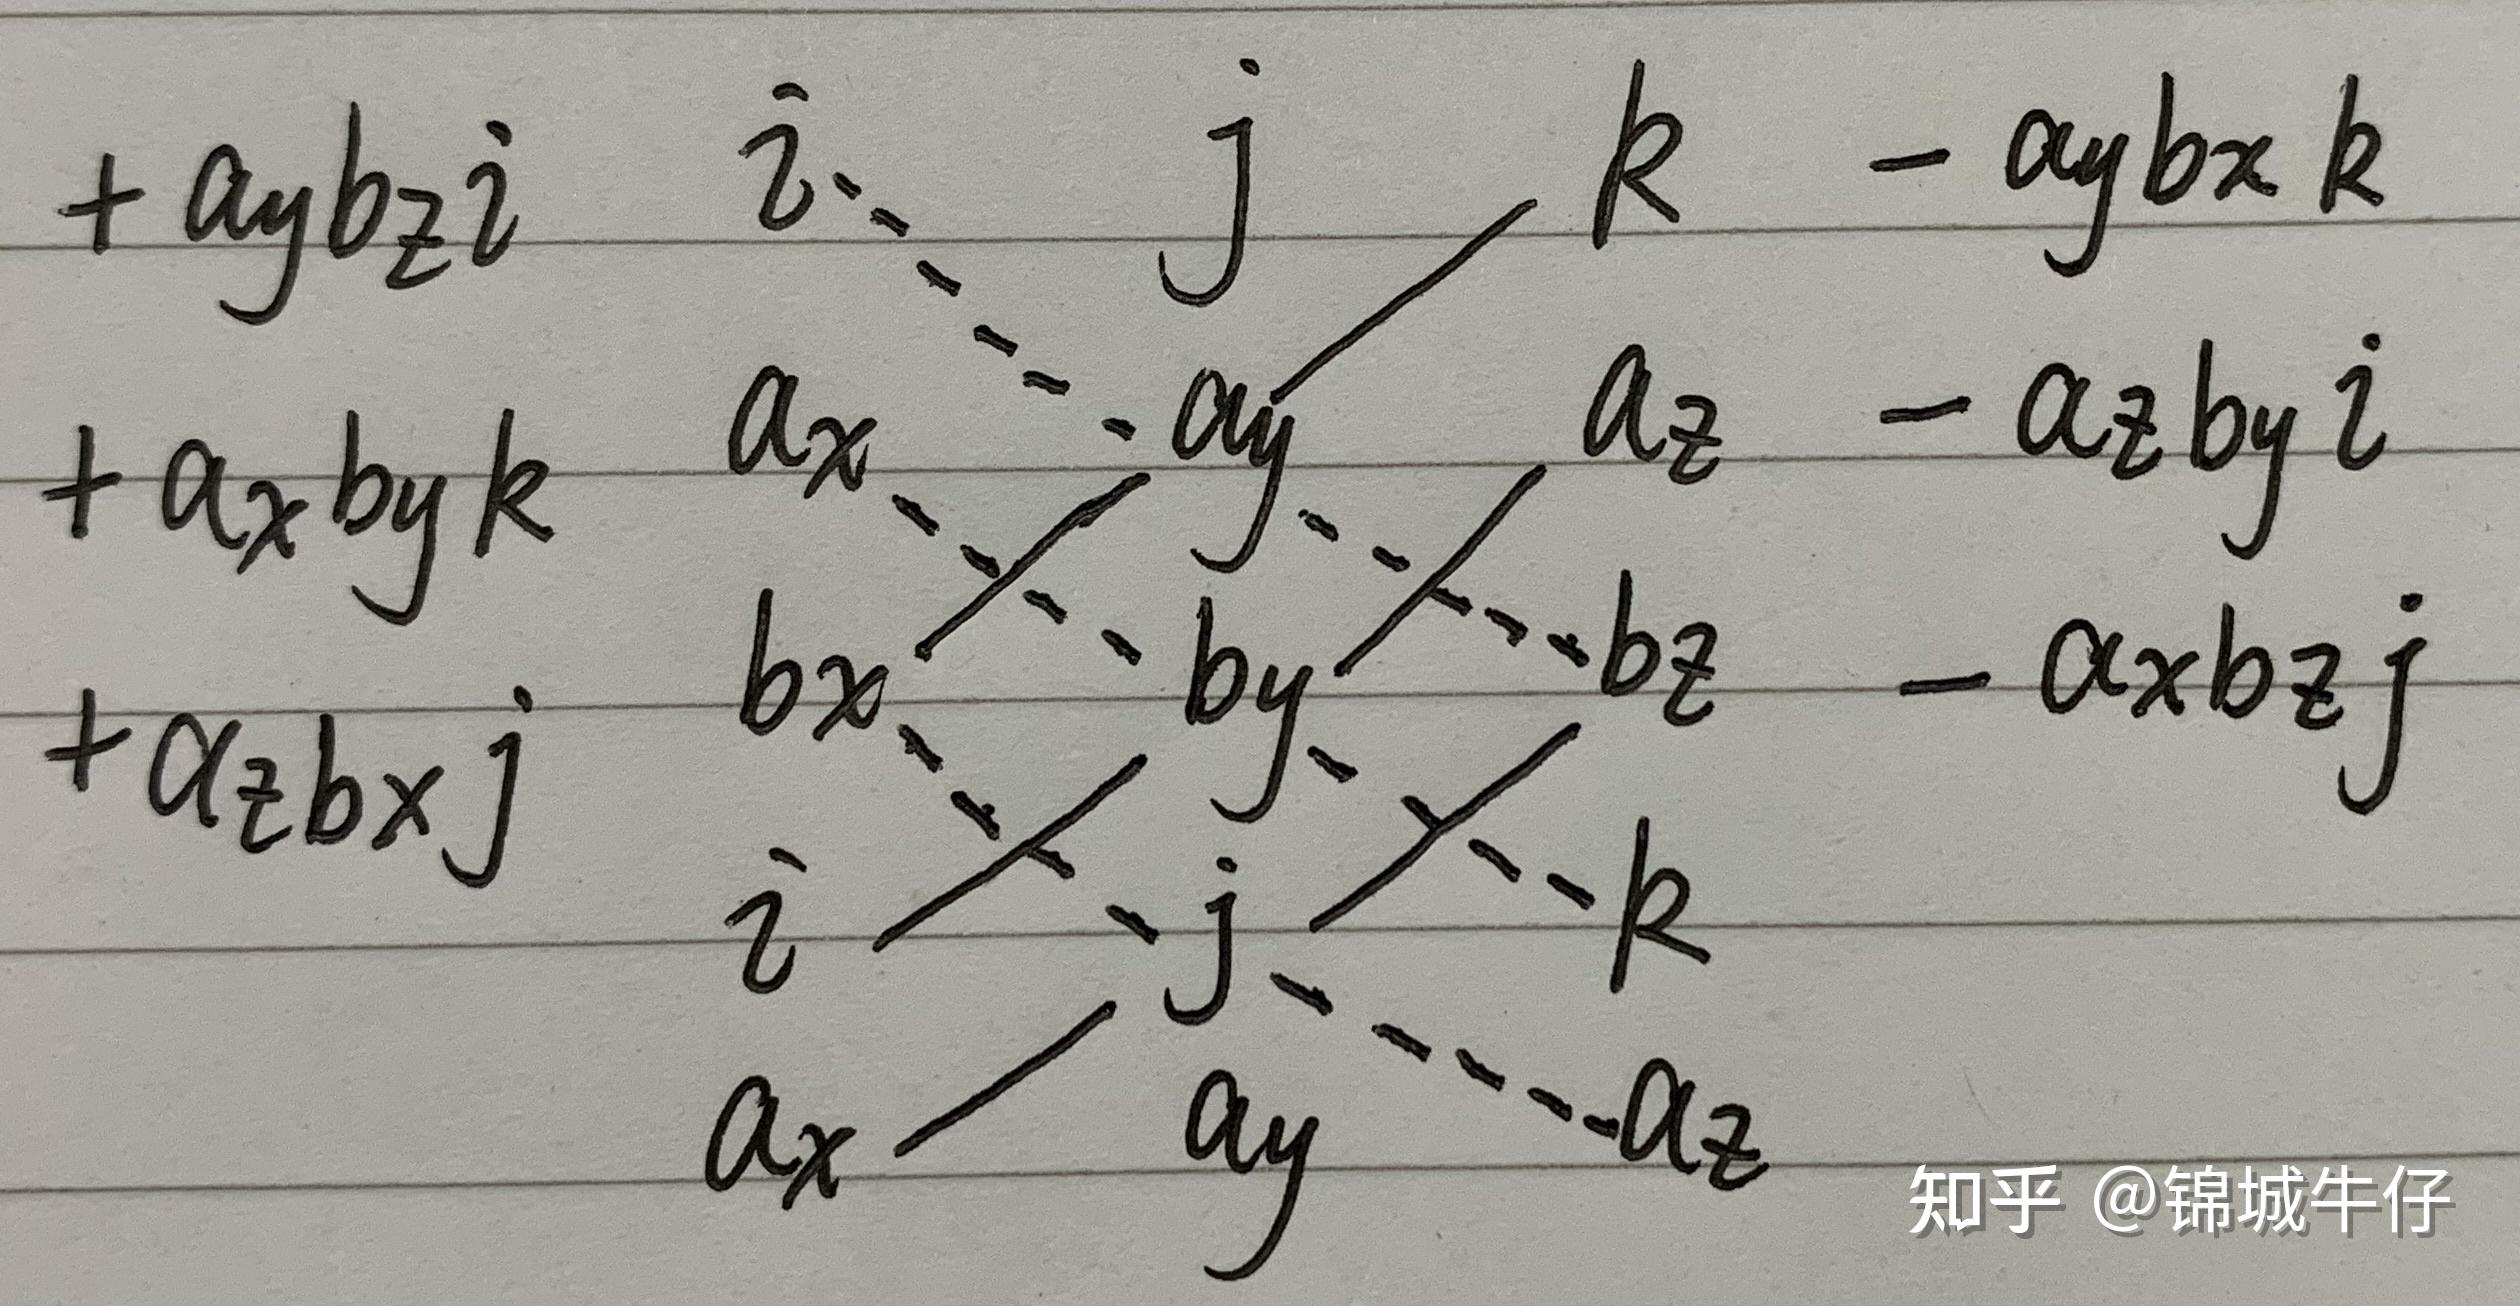 + aybzi i j k - aybxk
+ axbyk ax ay az - azbyi
+ azbxj bx by bz - axbzj
i j k
ax ay az
知乎 @锦城牛仔